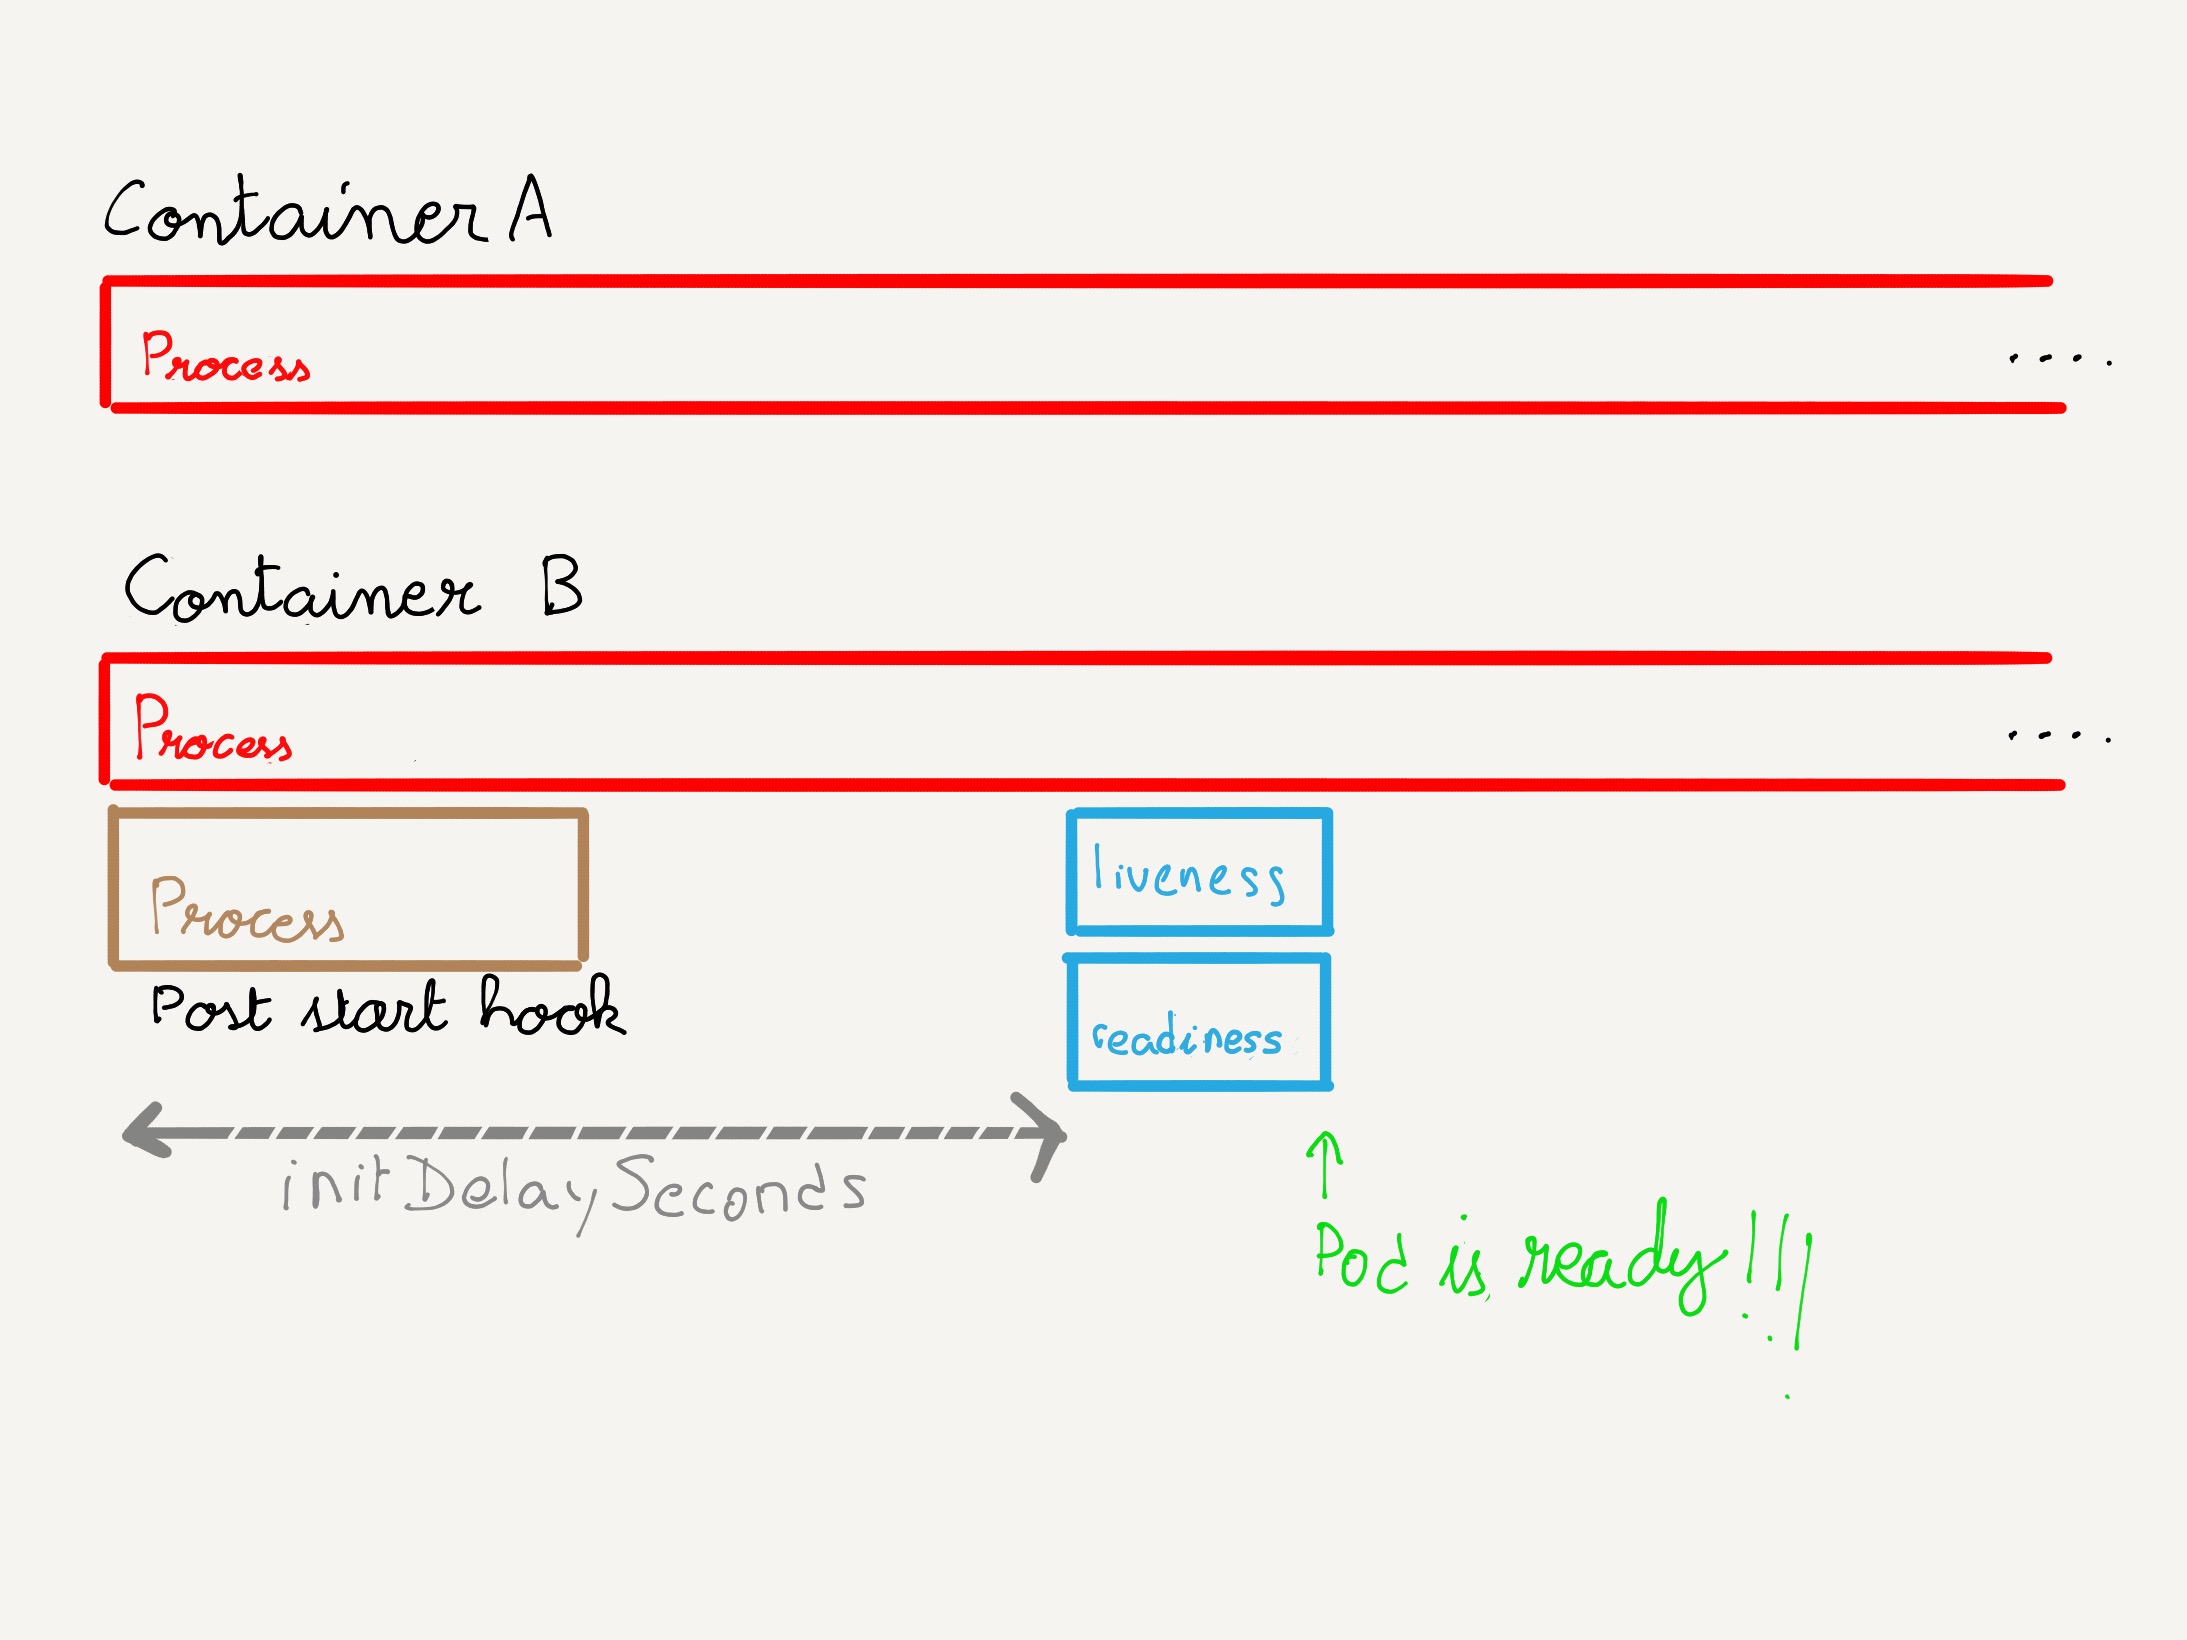 Container A
Process
....
Container B
Process
....
Process
liveness
Post start hook
readiness
initDelaySeconds
Pod is ready!!!